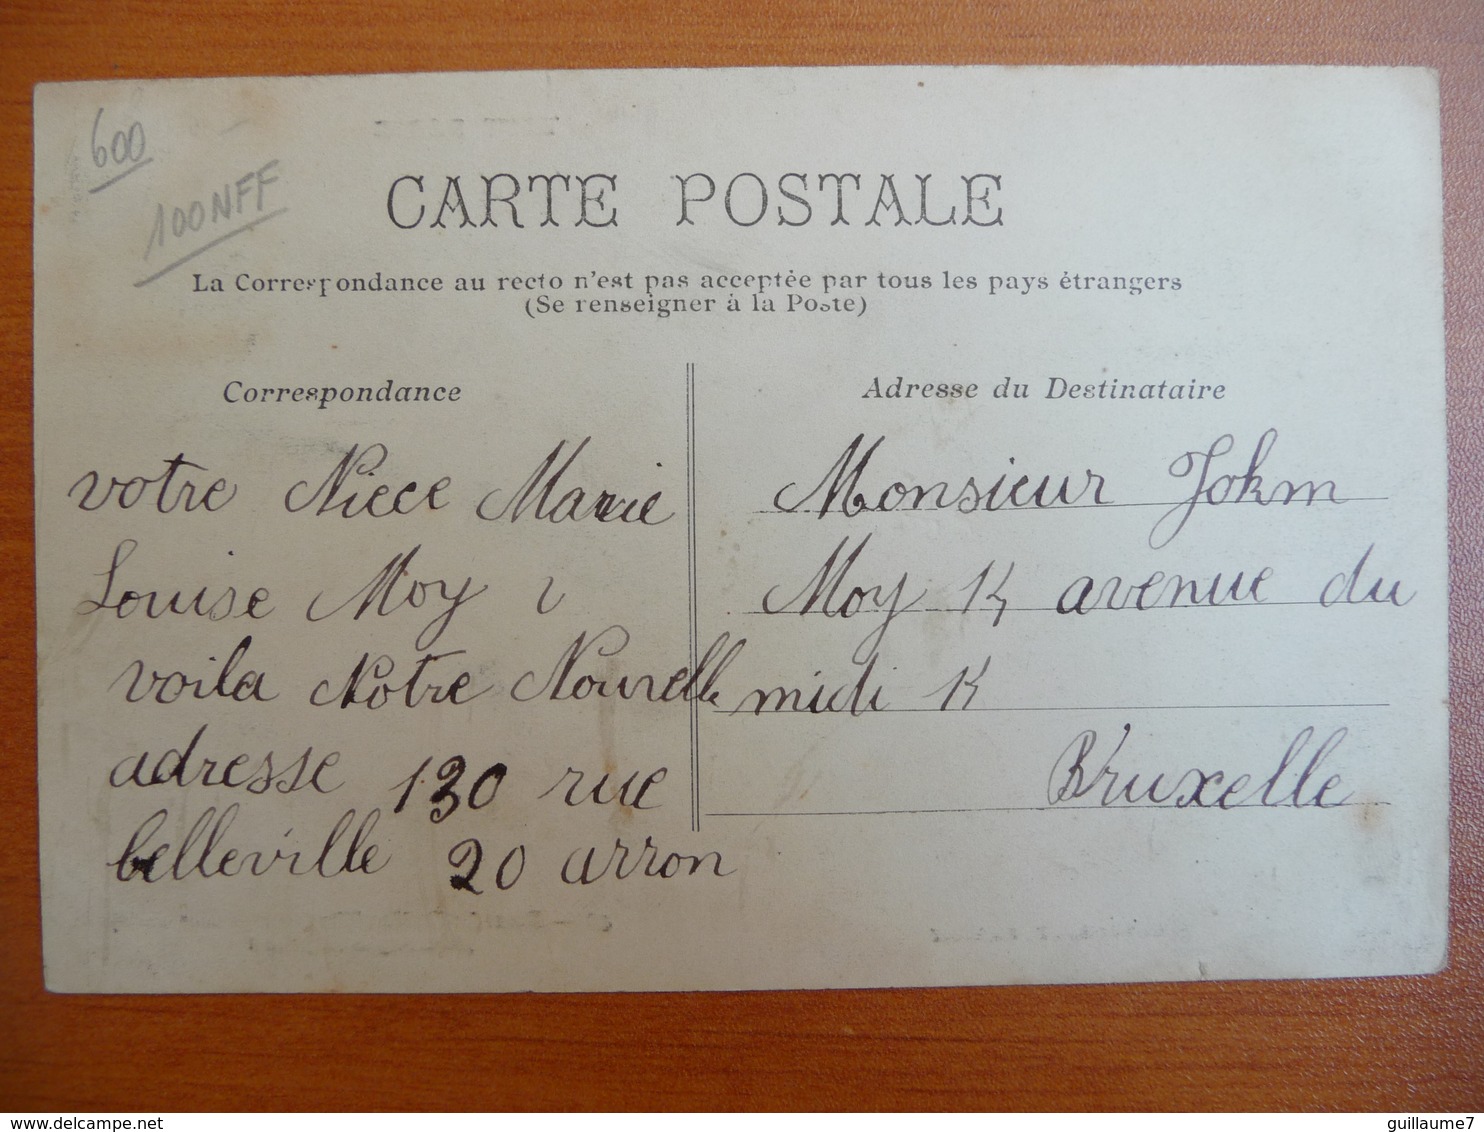 600
100NFF
CARTE POSTALE
La Correspondance au recto n'est pas acceptée par tous les pays étrangers
(Se renseigner à la Poste)
Correspondance
votre Niece Marie
Louise Moy
voila Notre Nouvelle
adresse 130 rue
belleville 20 arron
Adresse du Destinataire
Monsieur Johm
Moy 14 avenue du
midi 14
Bruxelle
guillaume7